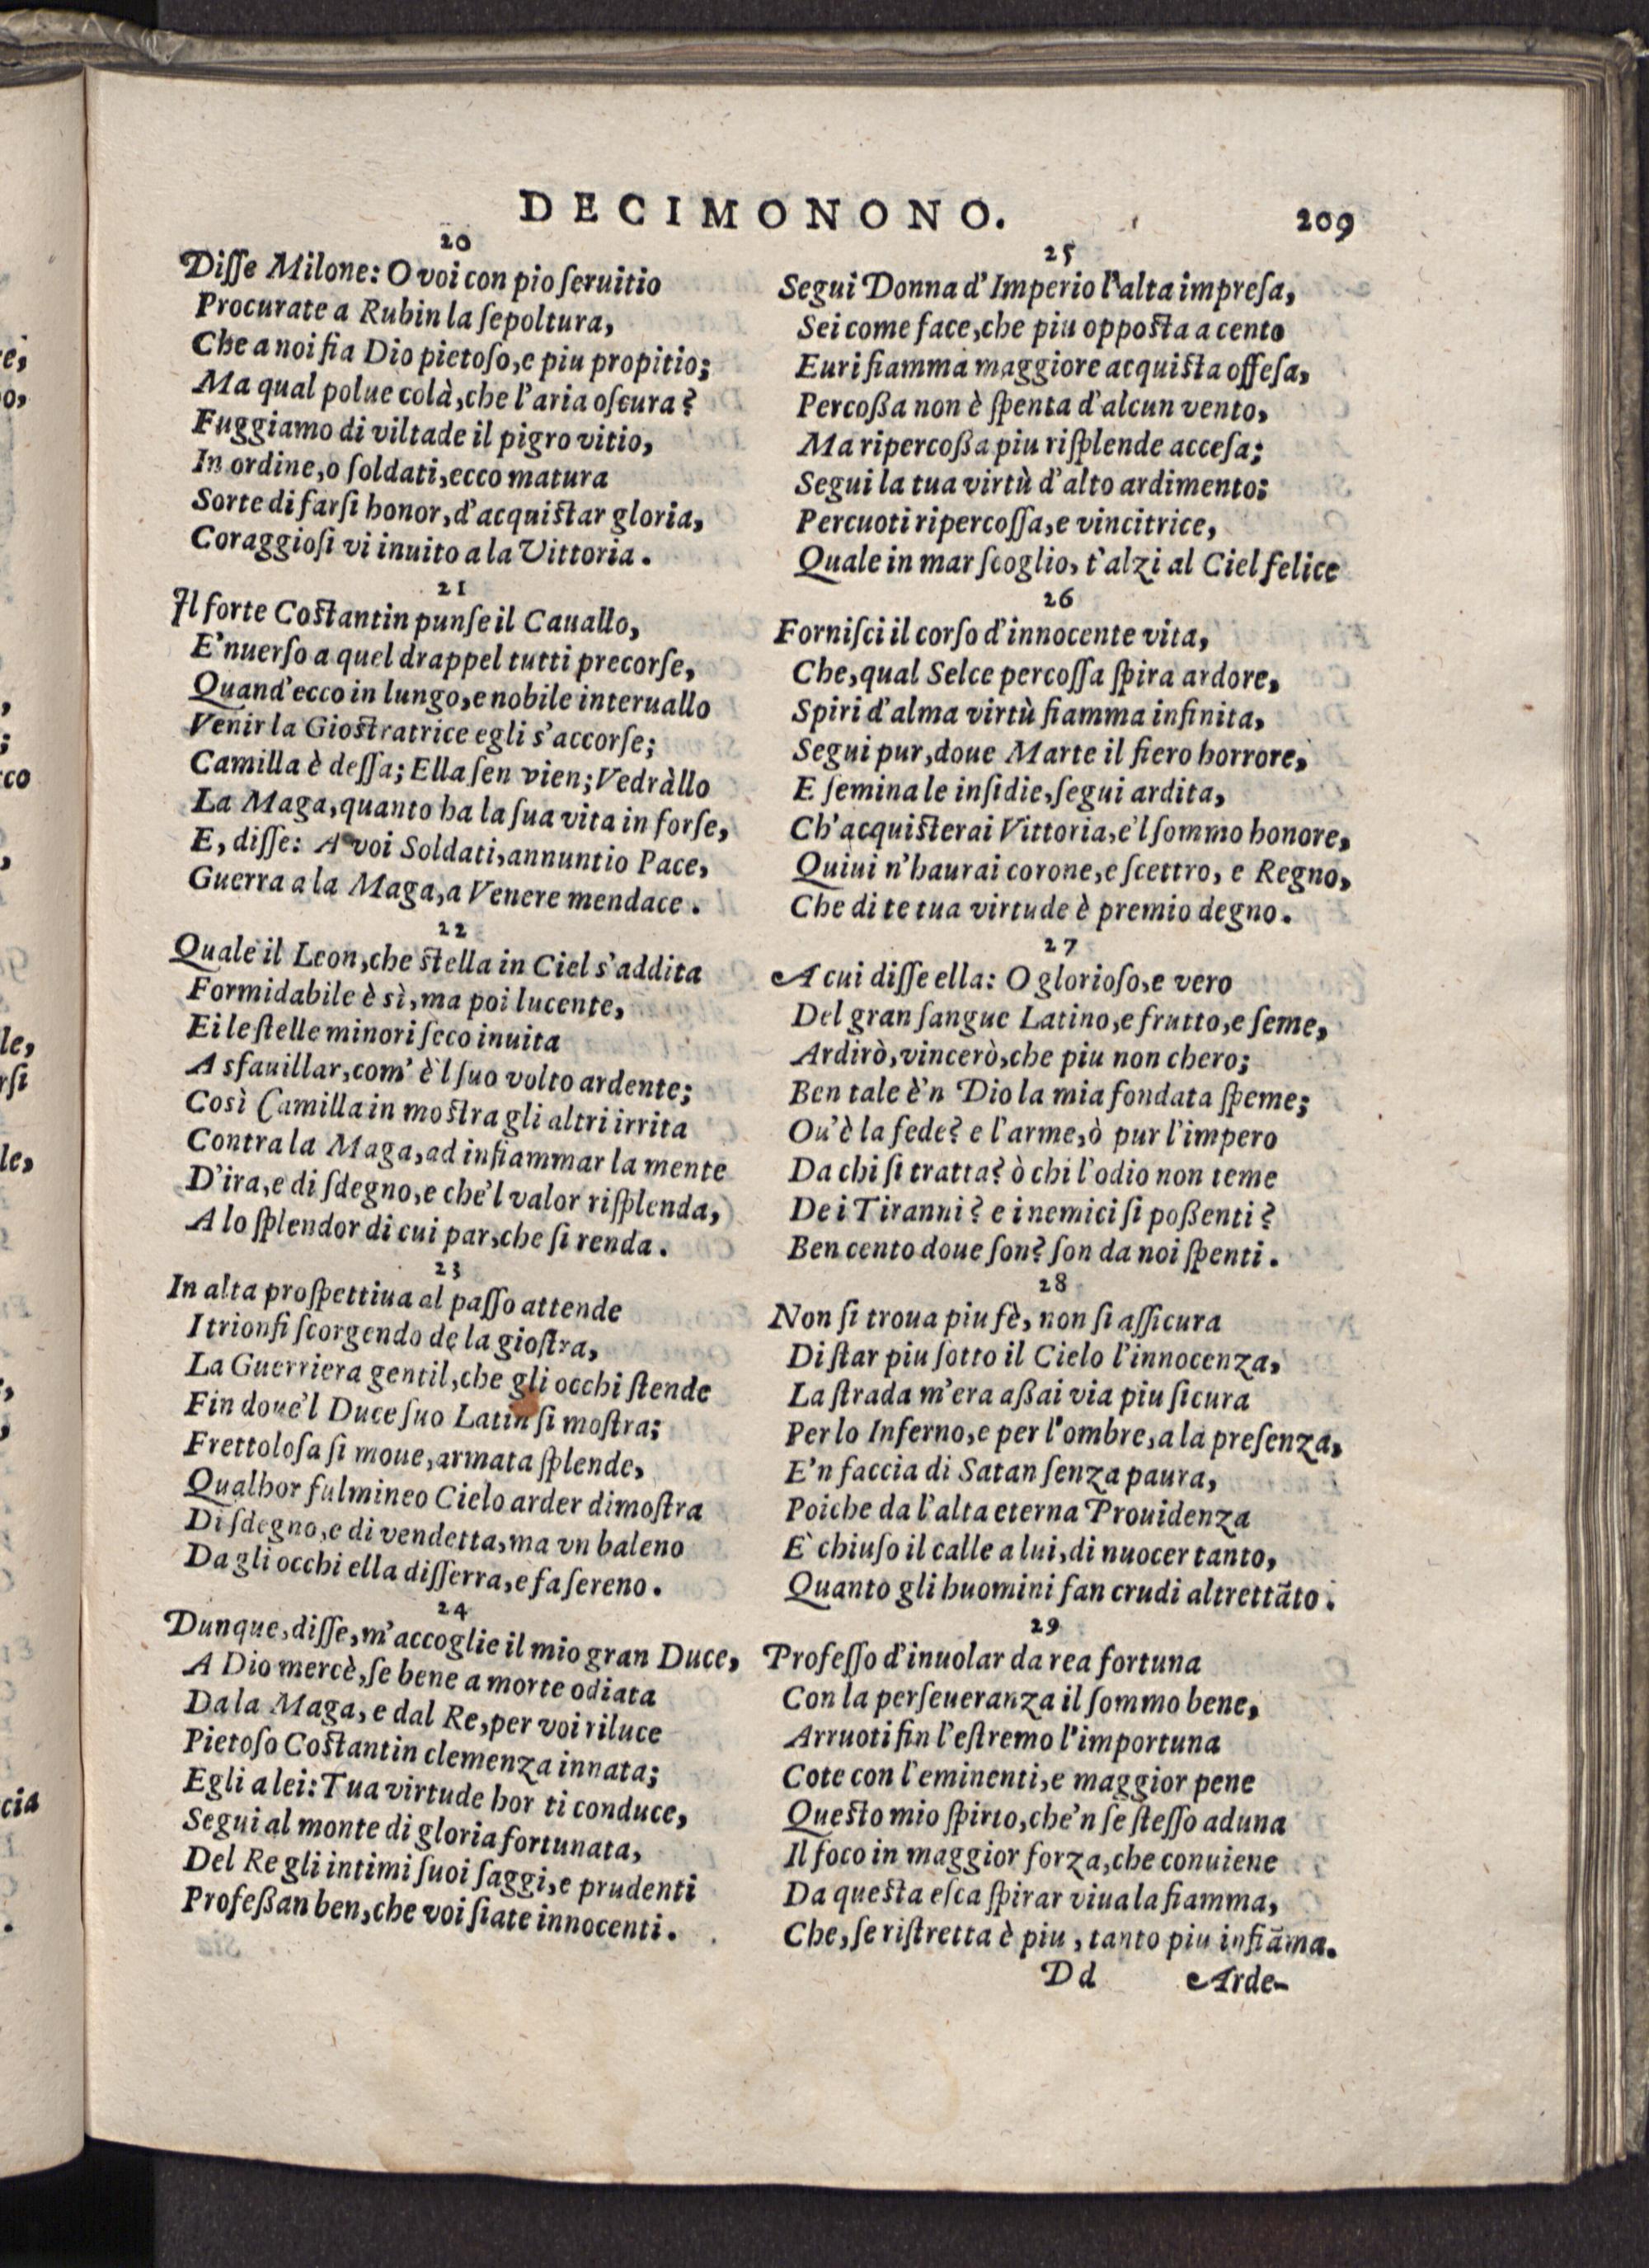 DECIMONONO. 209
20
Disse Milone: O voi con pio seruitio
Procurate a Rubin la sepoltura,
Che a noi fia Dio pietoso, e piu propitio;
Ma qual polue colà, che l'aria oscura?
Fuggiamo di viltade il pigro vitio,
In ordine, o soldati, ecco matura
Sorte di farsi honor, d'acquistar gloria,
Coraggiosi vi inuito a la Vittoria.
21
Il forte Costantin punse il Cauallo,
E'nuerso a quel drappel tutti precorse,
Quand'ecco in lungo, e nobile interuallo
Venir la Giostratrice egli s'accorse;
Camilla è dessa; Ella sen vien; Vedràllo
La Maga, quanto ha la sua vita in forse,
E, disse: A voi Soldati, annuntio Pace,
Guerra a la Maga, a Venere mendace.
22
Quale il Leon, che stella in Ciel s'addita
Formidabile è sì, ma poi lucente,
Ei le stelle minori seco inuita
A sfauillar, com'è'l suo volto ardente;
Così Camilla in mostra gli altri irrita
Contra la Maga, ad infiammar la mente
D'ira, e di sdegno, e che'l valor risplenda,
A lo splendor di cui par, che si renda.
23
In alta prospettiua al passo attende
I trionfi scorgendo de la giostra,
La Guerriera gentil, che gli occhi stende
Fin doue'l Duce suo Latin si mostra;
Frettolosa si moue, armata splende,
Qualhor fulmineo Cielo arder dimostra
Di sdegno, e di vendetta, ma vn baleno
Da gli occhi ella disserra, e fa sereno.
24
Dunque, disse, m'accoglie il mio gran Duce,
A Dio mercè, se bene a morte odiata
Da la Maga, e dal Re, per voi riluce
Pietoso Costantin clemenza innata;
Egli a lei: Tua virtude hor ti conduce,
Segui al monte di gloria fortunata,
Del Re gli intimi suoi saggi, e prudenti
Professan ben, che voi siate innocenti.
25
Segui Donna d'Imperio l'alta impresa,
Sei come face, che piu opposta a cento
Euri fiamma maggiore acquista offesa,
Percossa non è spenta d'alcun vento,
Ma ripercossa piu risplende accesa;
Segui la tua virtù d'alto ardimento:
Percuoti ripercossa, e vincitrice,
Quale in mar scoglio, t'alzi al Ciel felice
26
Fornisci il corso d'innocente vita,
Che, qual Selce percossa spira ardore,
Spiri d'alma virtù fiamma infinita,
Segui pur, doue Marte il fiero horrore,
E semina le insidie, segui ardita,
Ch'acquisterai Vittoria, e'l sommo honore,
Quiui n'haurai corone, e scettro, e Regno,
Che di te tua virtude è premio degno.
27
A cui disse ella: O glorioso, e vero
Del gran sangue Latino, e frutto, e seme,
Ardirò, vincerò, che piu non chero;
Ben tale è'n Dio la mia fondata speme;
Ou'è la fede? e l'arme, ò pur l'impero
Da chi si tratta? ò chi l'odio non teme
De i Tiranni? e i nemici si possenti?
Ben cento doue son? son da noi spenti.
28
Non si troua piu fè, non si assicura
Di star piu sotto il Cielo l'innocenza,
La strada m'era assai via piu sicura
Per lo Inferno, e per l'ombre, a la presenza,
E'n faccia di Satan senza paura,
Poiche da l'alta eterna Prouidenza
E' chiuso il calle a lui, di nuocer tanto,
Quanto gli huomini fan crudi altrettāto.
29
Professo d'inuolar da rea fortuna
Con la perseueranza il sommo bene,
Arruoti fin l'estremo l'importuna
Cote con l'eminenti, e maggior pene
Questo mio spirto, che'n se stesso aduna
Il foco in maggior forza, che conuiene
Da questa esca spirar viua la fiamma,
Che, se ristretta è piu, tanto piu infiāma.
Dd Arde-